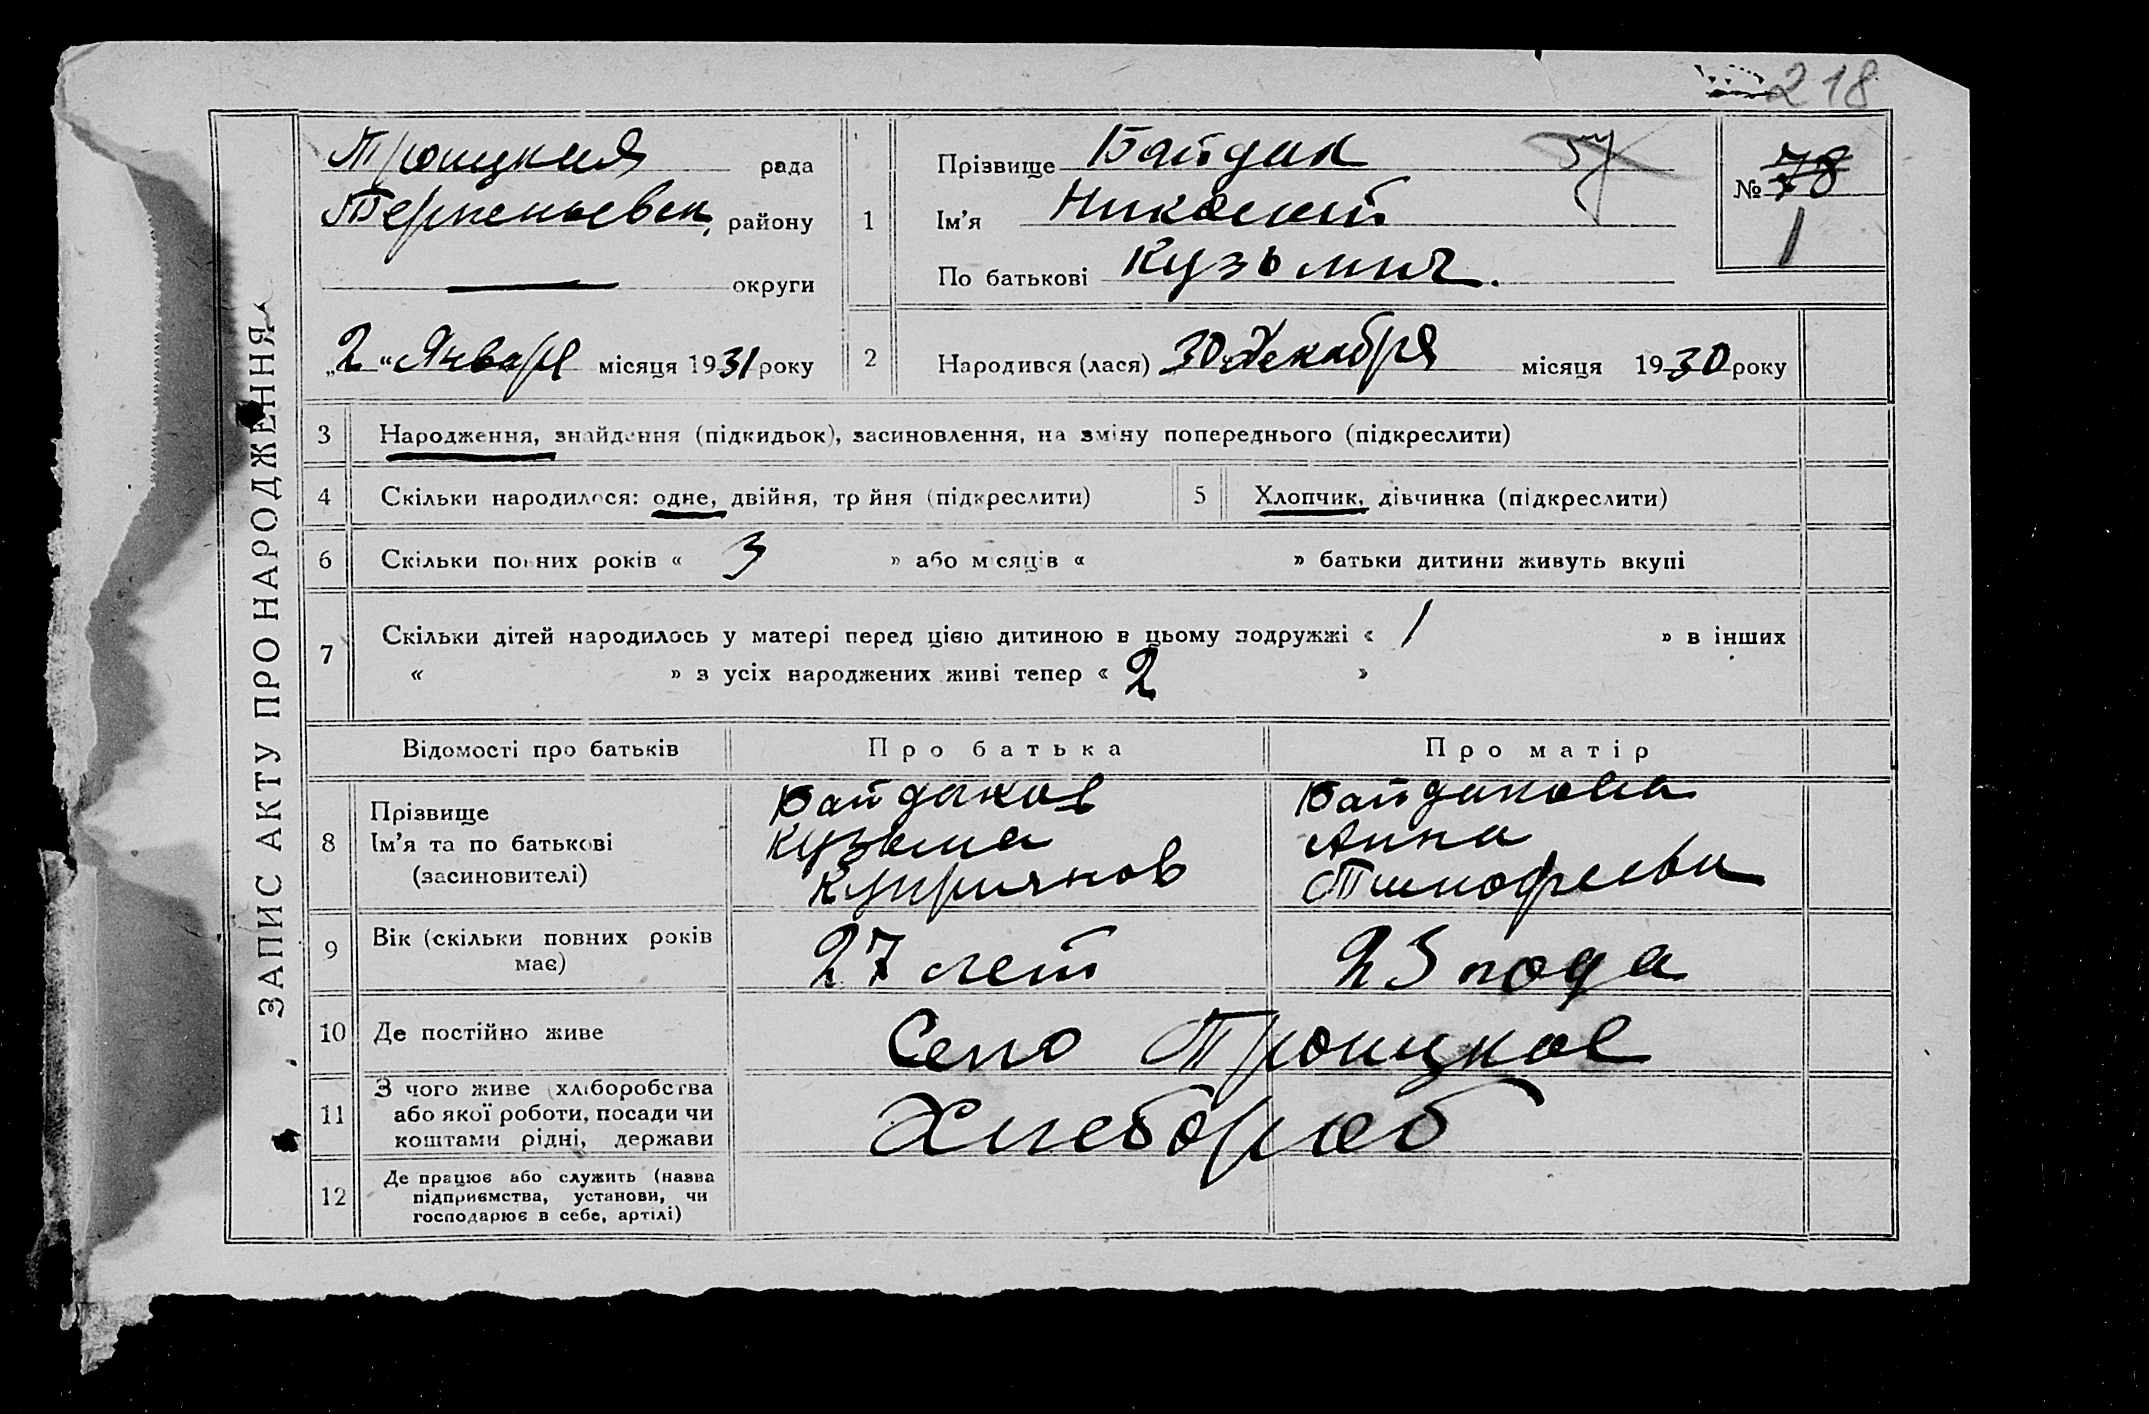 218
ЗАПИС АКТУ ПРО НАРОДЖЕННЯ
Троицкая рада
Терпеньевск, району
округи
„2“ Января місяця 1931 року
1
Прізвище Байдак
Ім’я Николай
По батькові Кузьмич.
№ 78
1
2 Народився (лася) 30 Декабря місяця 1930 року
3 Народження, знайдення (підкидьок), засиновлення, на зміну попереднього (підкреслити)
4 Скільки народилося: одне, двійня, тройня (підкреслити) 5 Хлопчик, дівчинка (підкреслити)
6 Скільки повних років « 3 » або місяців « » батьки дитини живуть вкупі
7 Скільки дітей народилось у матері перед цією дитиною в цьому подружжі « 1 » в інших
« » з усіх народжених живі тепер « 2 »
Відомості про батьків Про батька Про матір
8 Прізвище Байдаков Байдакова
Ім’я та по батькові Кузьма Анна
(засновителі) Куприянов Тимофеевн
9 Вік (скільки повних років має) 27 лет 23 года
10 Де постійно живе Село Троицкое
11 З чого живе (хліборобства або якої роботи, посади чи коштами рідні, держави Хлебороб
12 Де працює або служить (назва підприємства, установи, чи господарює в себе, артілі)